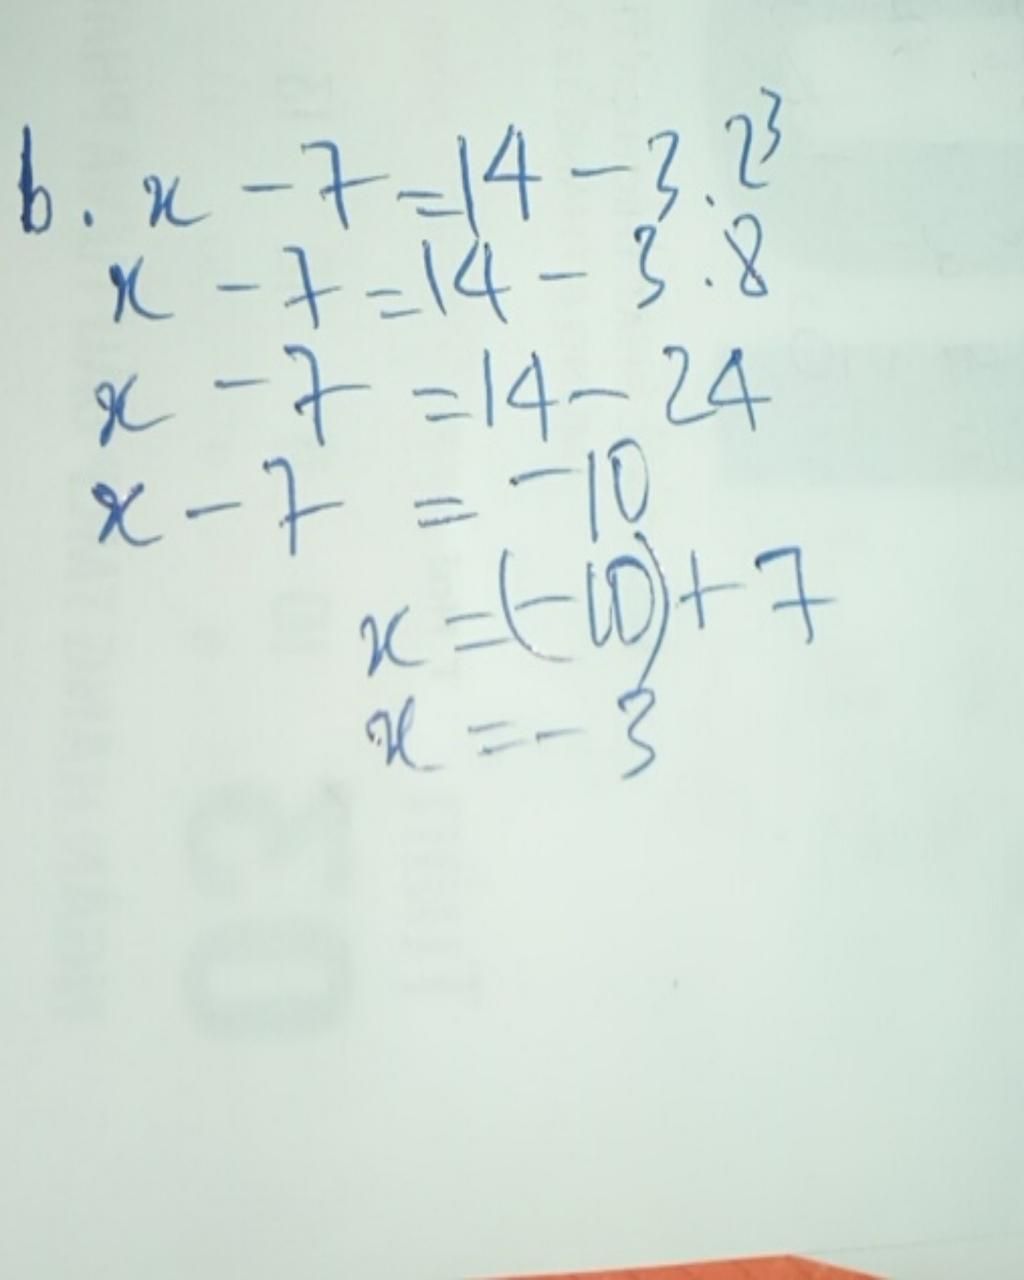 b. x - 7 = 14 - 3 . 2³
x - 7 = 14 - 3 . 8
x - 7 = 14 - 24
x - 7 = -10
x = (-10) + 7
x = - 3